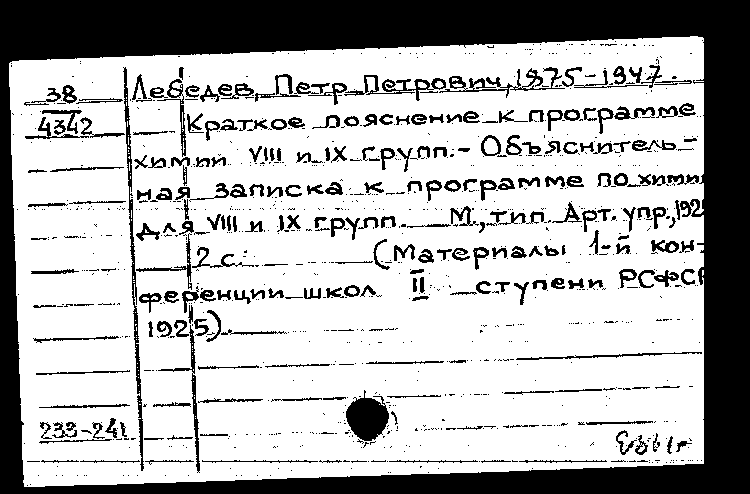 38
4342
Лебедев, Петр Петрович, 1875-1947.
Краткое пояснение к программе
химии VIII и IX групп.- Объяснитель-
ная записка к программе по хими
для VIII и IX групп. М., тип. Арт. упр., 192
2 с. (Материалы 1-й кон-
ференции школ II ступени РСФСР
1925).
233-241